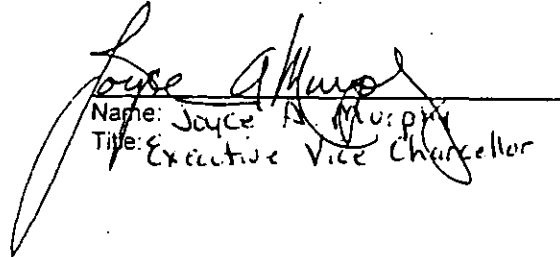 Joyce A Murphy
Name: Joyce A. Murphy
Title: Executive Vice Chancellor